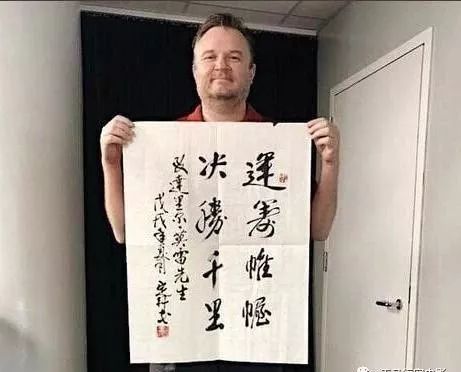 運籌帷幄
决勝千里
致達里尔·莫雷先生
戊戌年春月书